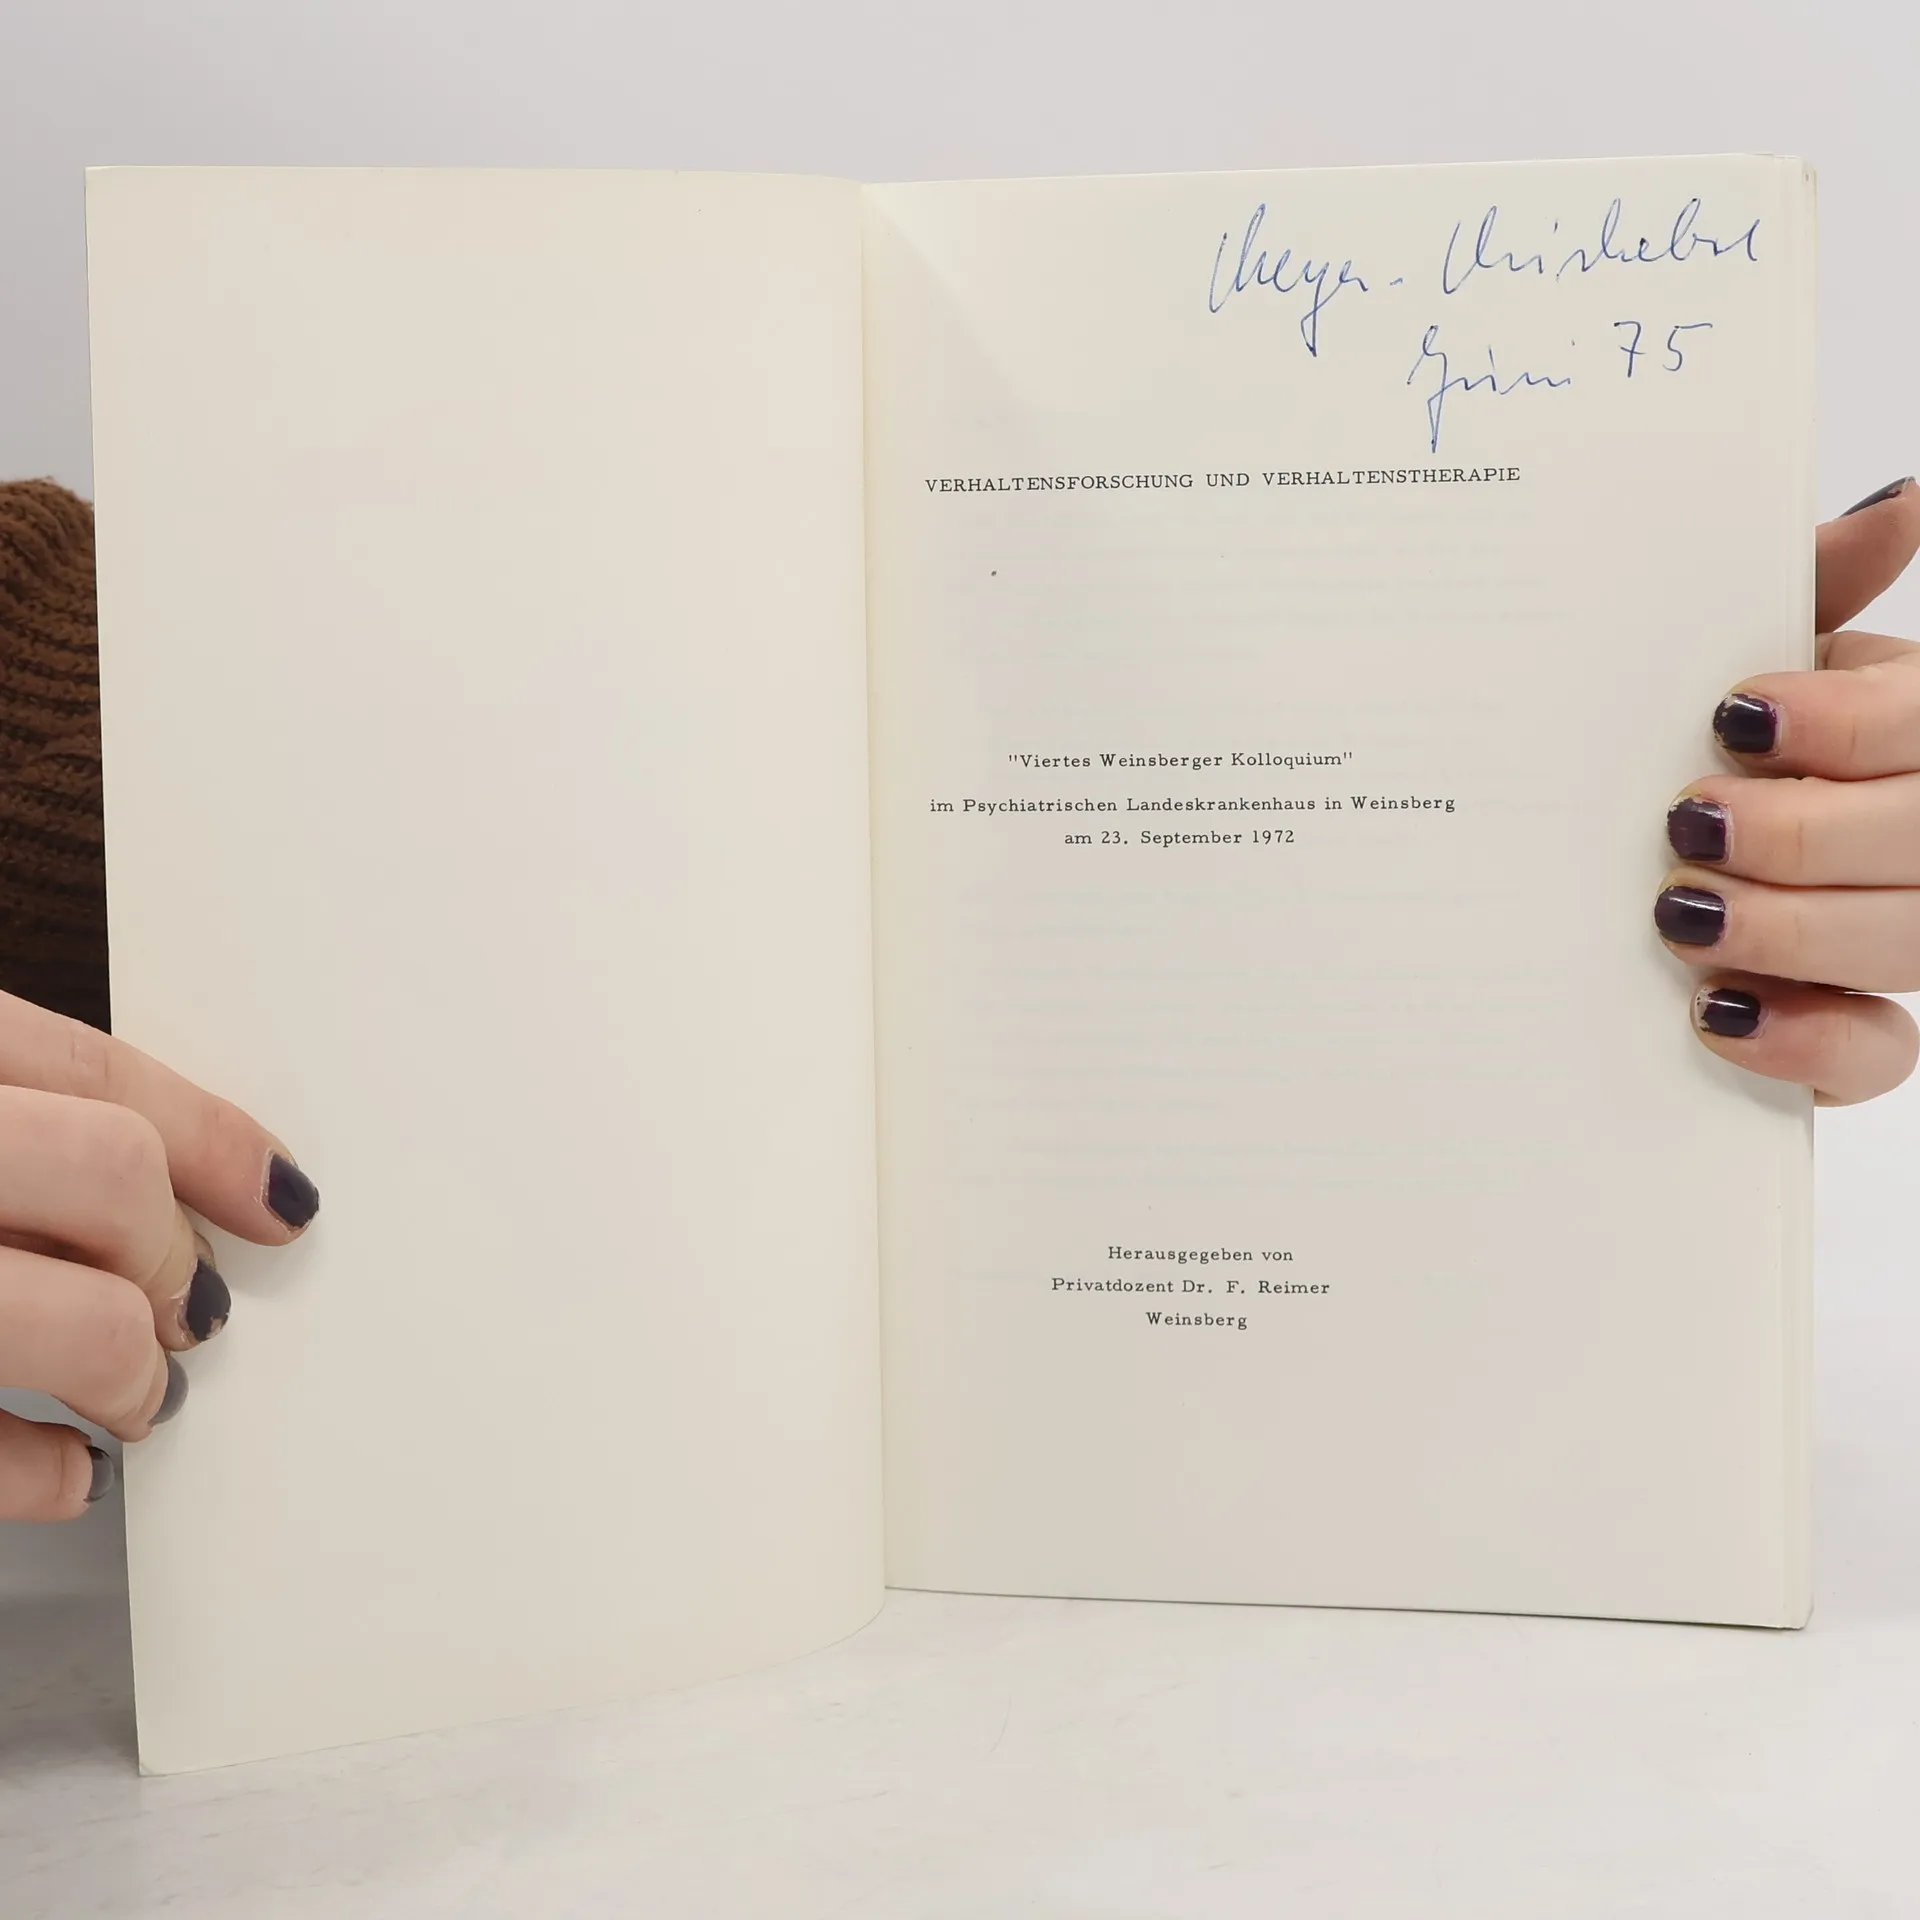 Meyer-
Juni 75
VERHALTENSFORSCHUNG UND VERHALTENSTHERAPIE
"Viertes Weinsberger Kolloquium"
im Psychiatrischen Landeskrankenhaus in Weinsberg
am 23. September 1972
Herausgegeben von
Privatdozent Dr. F. Reimer
Weinsberg